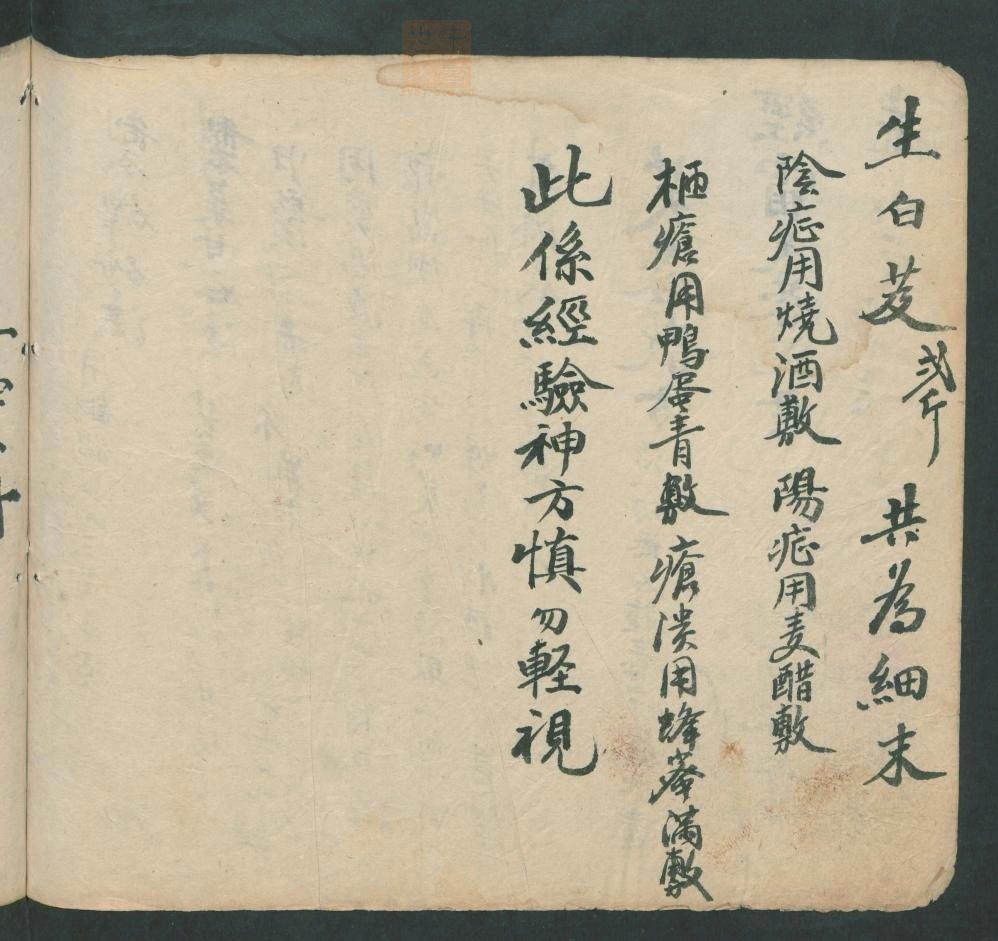 生白芨 弍斤 共為細末
陰症用燒酒敷 陽症用麦醋敷
瘡用鴨蛋青敷 瘡潰用蜂 滿敷
此係經驗神方慎勿軽視